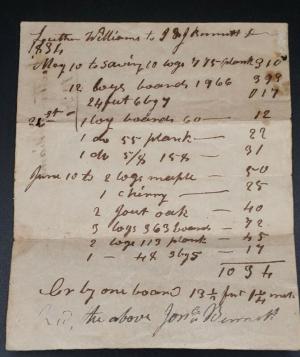 Luther Williams to J & J Bennett Dr
1834
May 10 to sawing 10 logs 775 plank 3 10
12 logs boards 1966 3 93
24 feet 6 by 7 0 17
21st 1 log boards 60 12
1 do 55 plank 22
1 do 5/8 158 31
June 10 to 2 logs maple 50
1 cherry 25
2 oak 40
3 logs 363 boards 72
2 logs 113 plank 45
1 48 3 by 5 17
10 3 4
Cr by one board 13 1/2 feet 1 1/4
the above Bennett